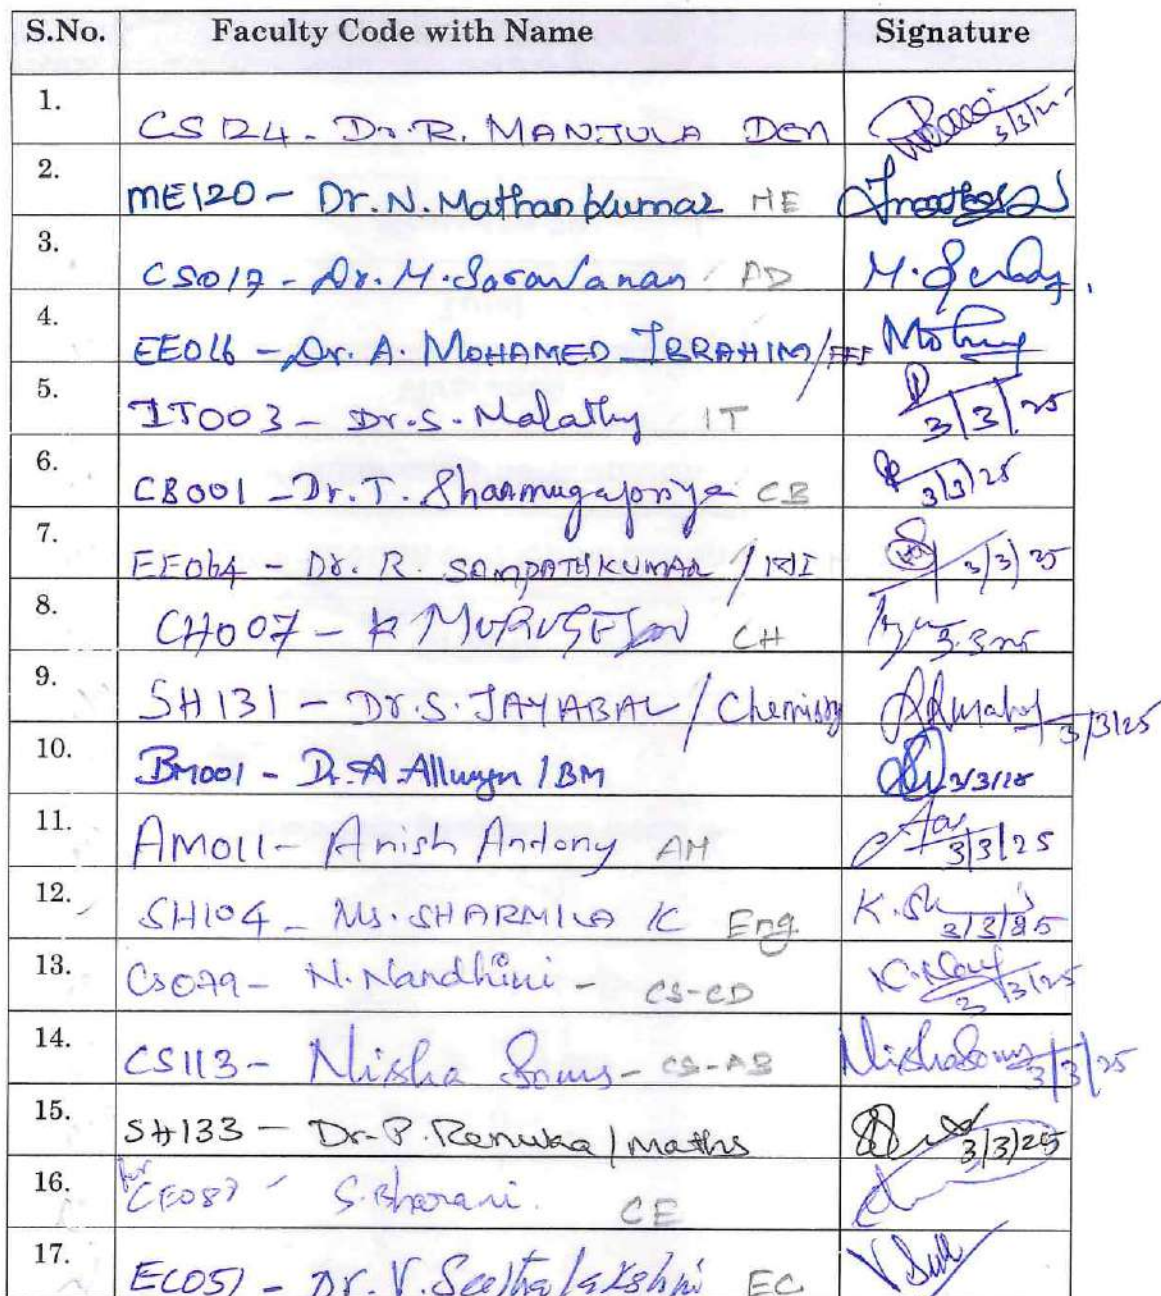 S.No. Faculty Code with Name Signature
1. CS124 - Dr. R. MANJULA Den 3/3/25
2. ME120 - Dr. N. Mathankumar ME
3. CS017 - Dr. M. Saravanan AD M.
4. EE016 - Dr. A. MOHAMED IBRAHIM / EEE
5. IT003 - Dr. S. Malathy IT 3/3/25
6. CB001 - Dr. T. Shanmugapriya CB 3/3/25
7. EE064 - Dr. R. SAMPATHKUMAR / 3/3/25
8. CH007 - K MURUGESAN CH 3.3.25
9. SH131 - Dr. S. JAYABAL / Chemistry 3/3/25
10. BM001 - Dr. A. Allwyn / BM 3/3/25
11. AM011 - Anish Antony AM 3/3/25
12. SH104 - Ms. SHARMILA K Eng K. 3/3/25
13. CS079 - N. Nandhini - CS-CD 3/3/25
14. CS113 - Nisha Soms - CS-AB Nisha Soms 3/3/25
15. SH133 - Dr. P. Renukaa / Maths 3/3/25
16. CE087 - S. Bharani. CE
17. EC051 - Dr. V. Seethalakshmi EC